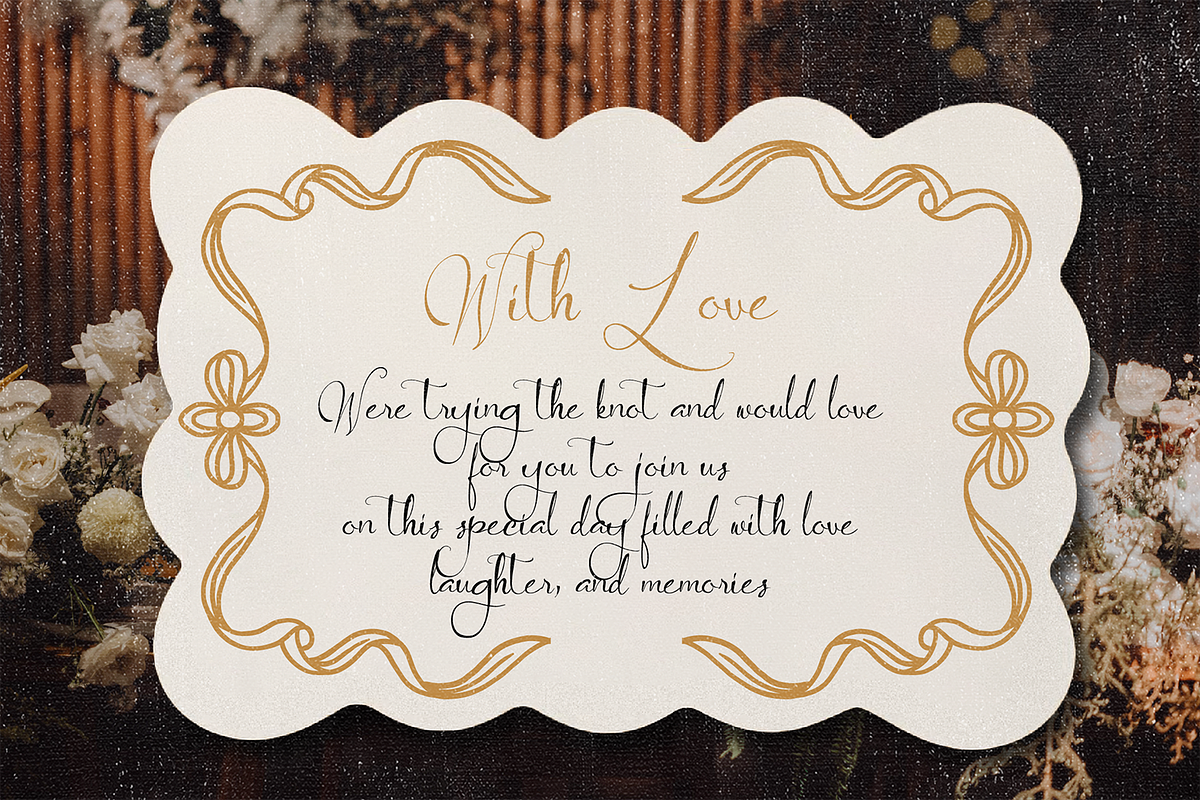 With Love
Were trying the knot and would love
for you to join us
on this special day filled with love
laughter, and memories